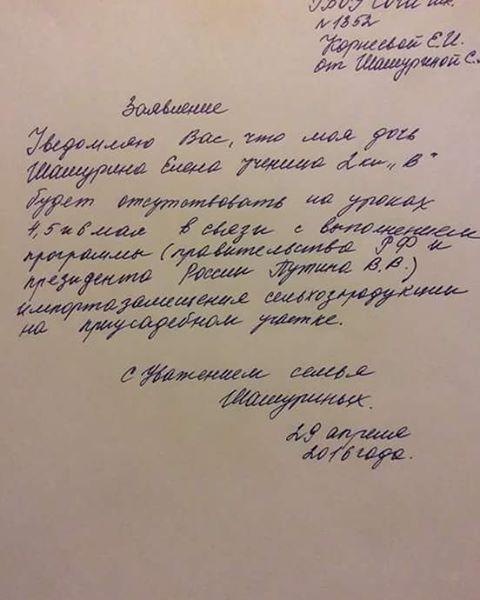 ГБОУ СОШ шк.
№1352
Корневой Е.И.
от Шашуриной С.
Заявление
Уведомляю Вас, что моя дочь
Шашурина Елена ученица 2кл „В"
будет отсутствовать на уроках
4,5 и 6 мая в связи с выполнением
программы (правительства РФ и
президента России Путина В.В.)
импортазамещения сельхозпродукции
на приусадебном участке.
С Уважением семья
Шашуриных.
29 апреля
2016 года.